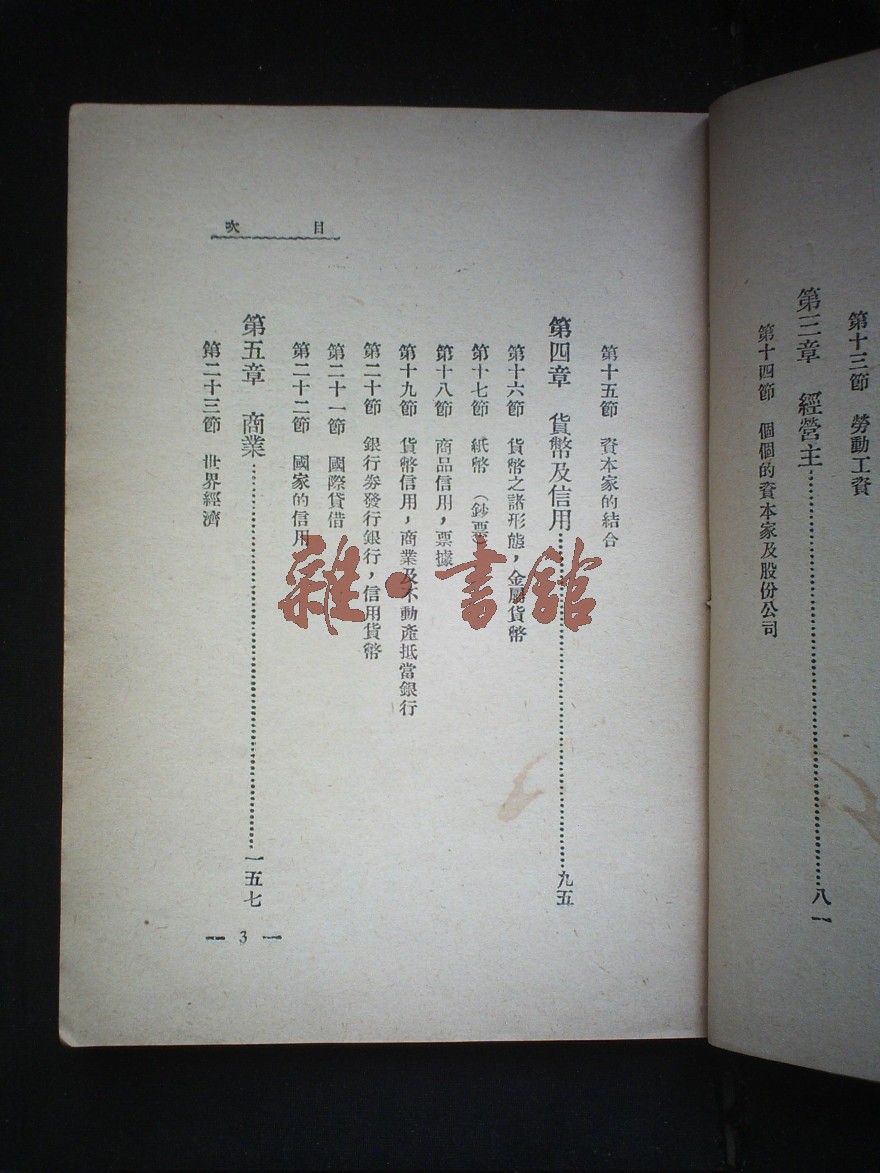 第十三節　勞動工資
第三章　經營主……八一
第十四節　個個的資本家及股份公司
目　次
第十五節　資本家的結合
第四章　貨幣及信用……九五
第十六節　貨幣之諸形態，金屬貨幣
第十七節　紙幣（鈔票）
第十八節　商品信用，票據
第十九節　貨幣信用，商業及不動產抵當銀行
第二十節　銀行券發行銀行，信用貨幣
第二十一節　國際貸借
第二十二節　國家的信用
第五章　商業……一五七
第二十三節　世界經濟
— 3 —
雜·書館